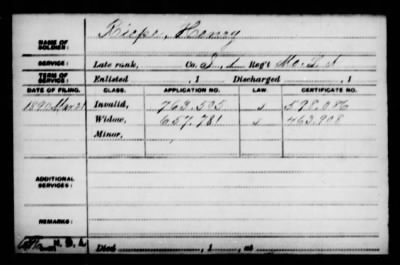 NAME OF SOLDIER: Riepe, Henry
SERVICE: Late rank, Co. I, L Reg't Mo. L. A
TERM OF SERVICE: Enlisted , 1 Discharged , 1
DATE OF FILING. CLASS. APPLICATION NO. LAW. CERTIFICATE NO.
1890 Mar 21 Invalid, 763.595 s 598.086
Widow, 657.781 s 463.908
Minor,
ADDITIONAL SERVICES:
REMARKS:
Died , 1 , at